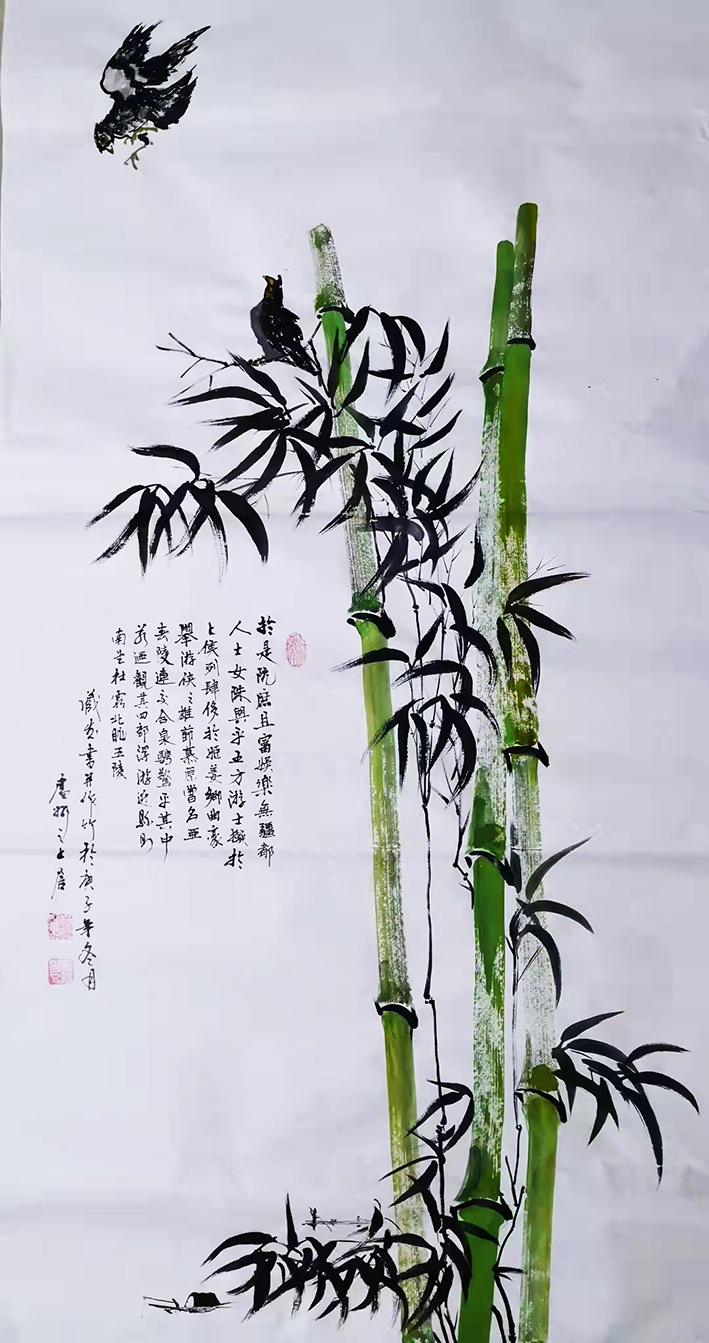 於是既庶且富娛樂無疆都
人士女殊異乎五方游士擬於
公侯列肆侈於姬姜鄉曲豪
舉游俠之雄節慕原嘗名亞
春陵連交合衆騁騖乎其中
若迺觀其四郊浮游近縣則
南望杜霸北眺王陵
書并作竹於庚子年冬月